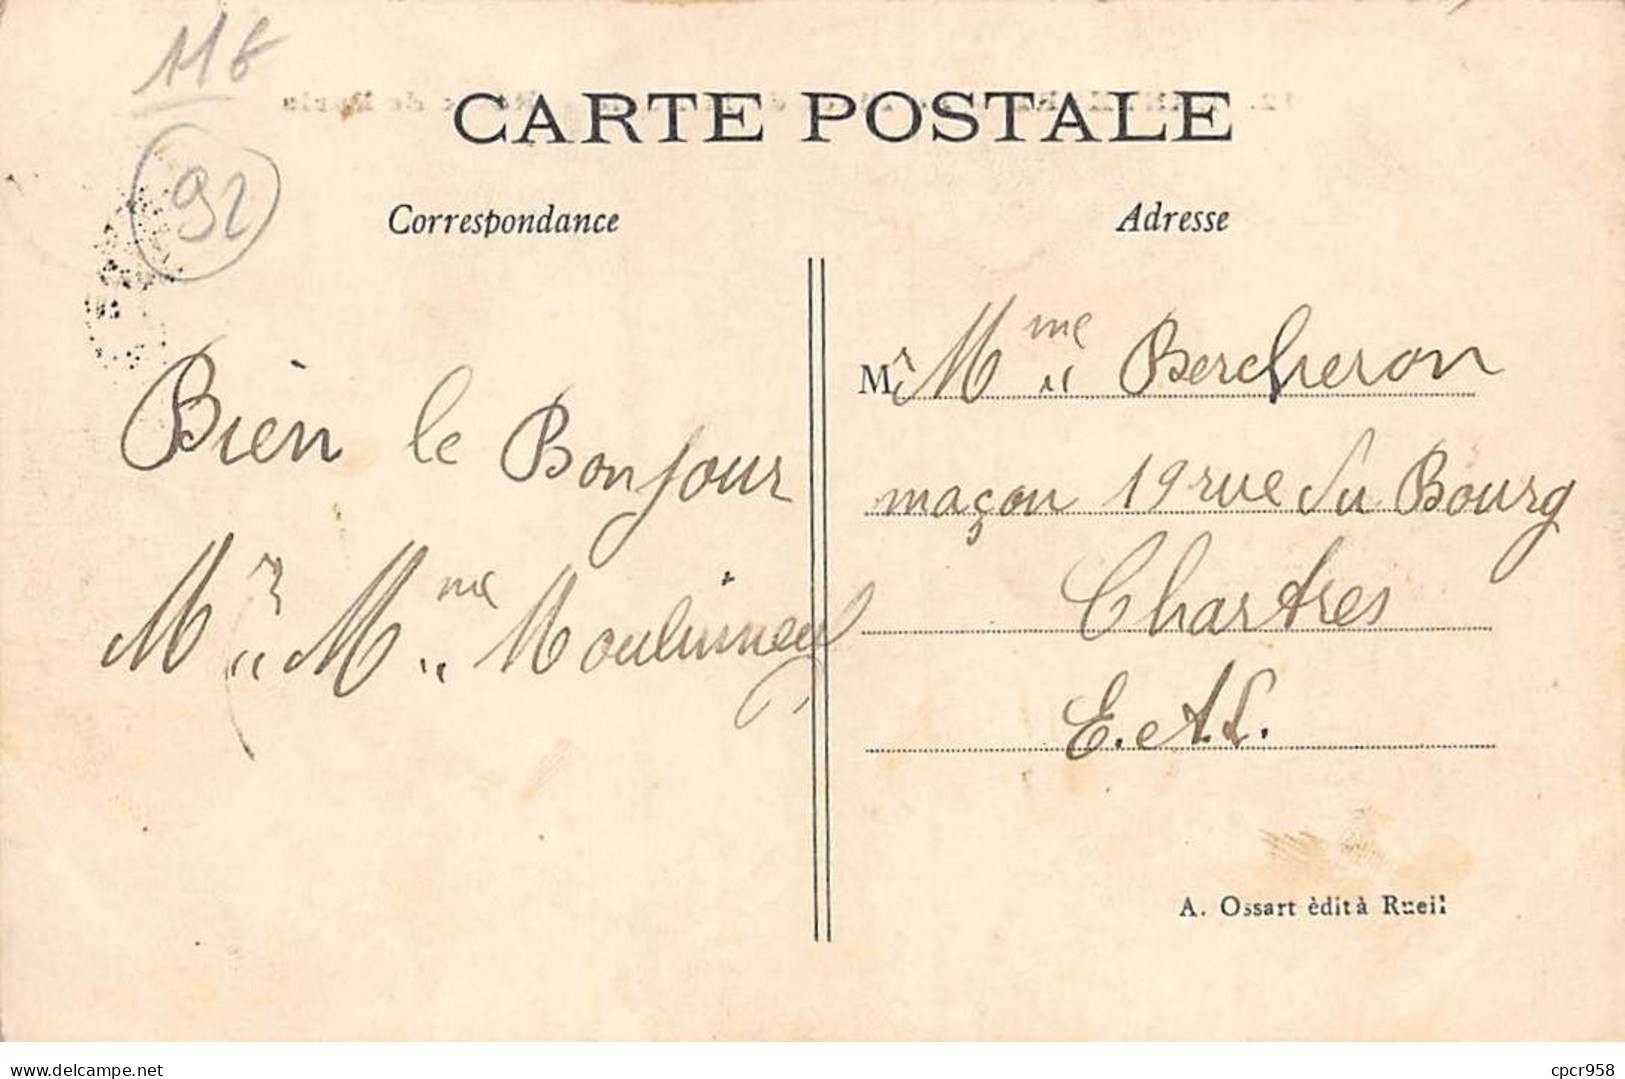 11 €
92
CARTE POSTALE
Correspondance
Adresse
Bien le Bonjour
Mr Mme
M Mme Bercheron
maçon 19 rue du Bourg
Chartres
E. et L.
A. Ossart èdit à Rueil
delcampe.net
cpcr958